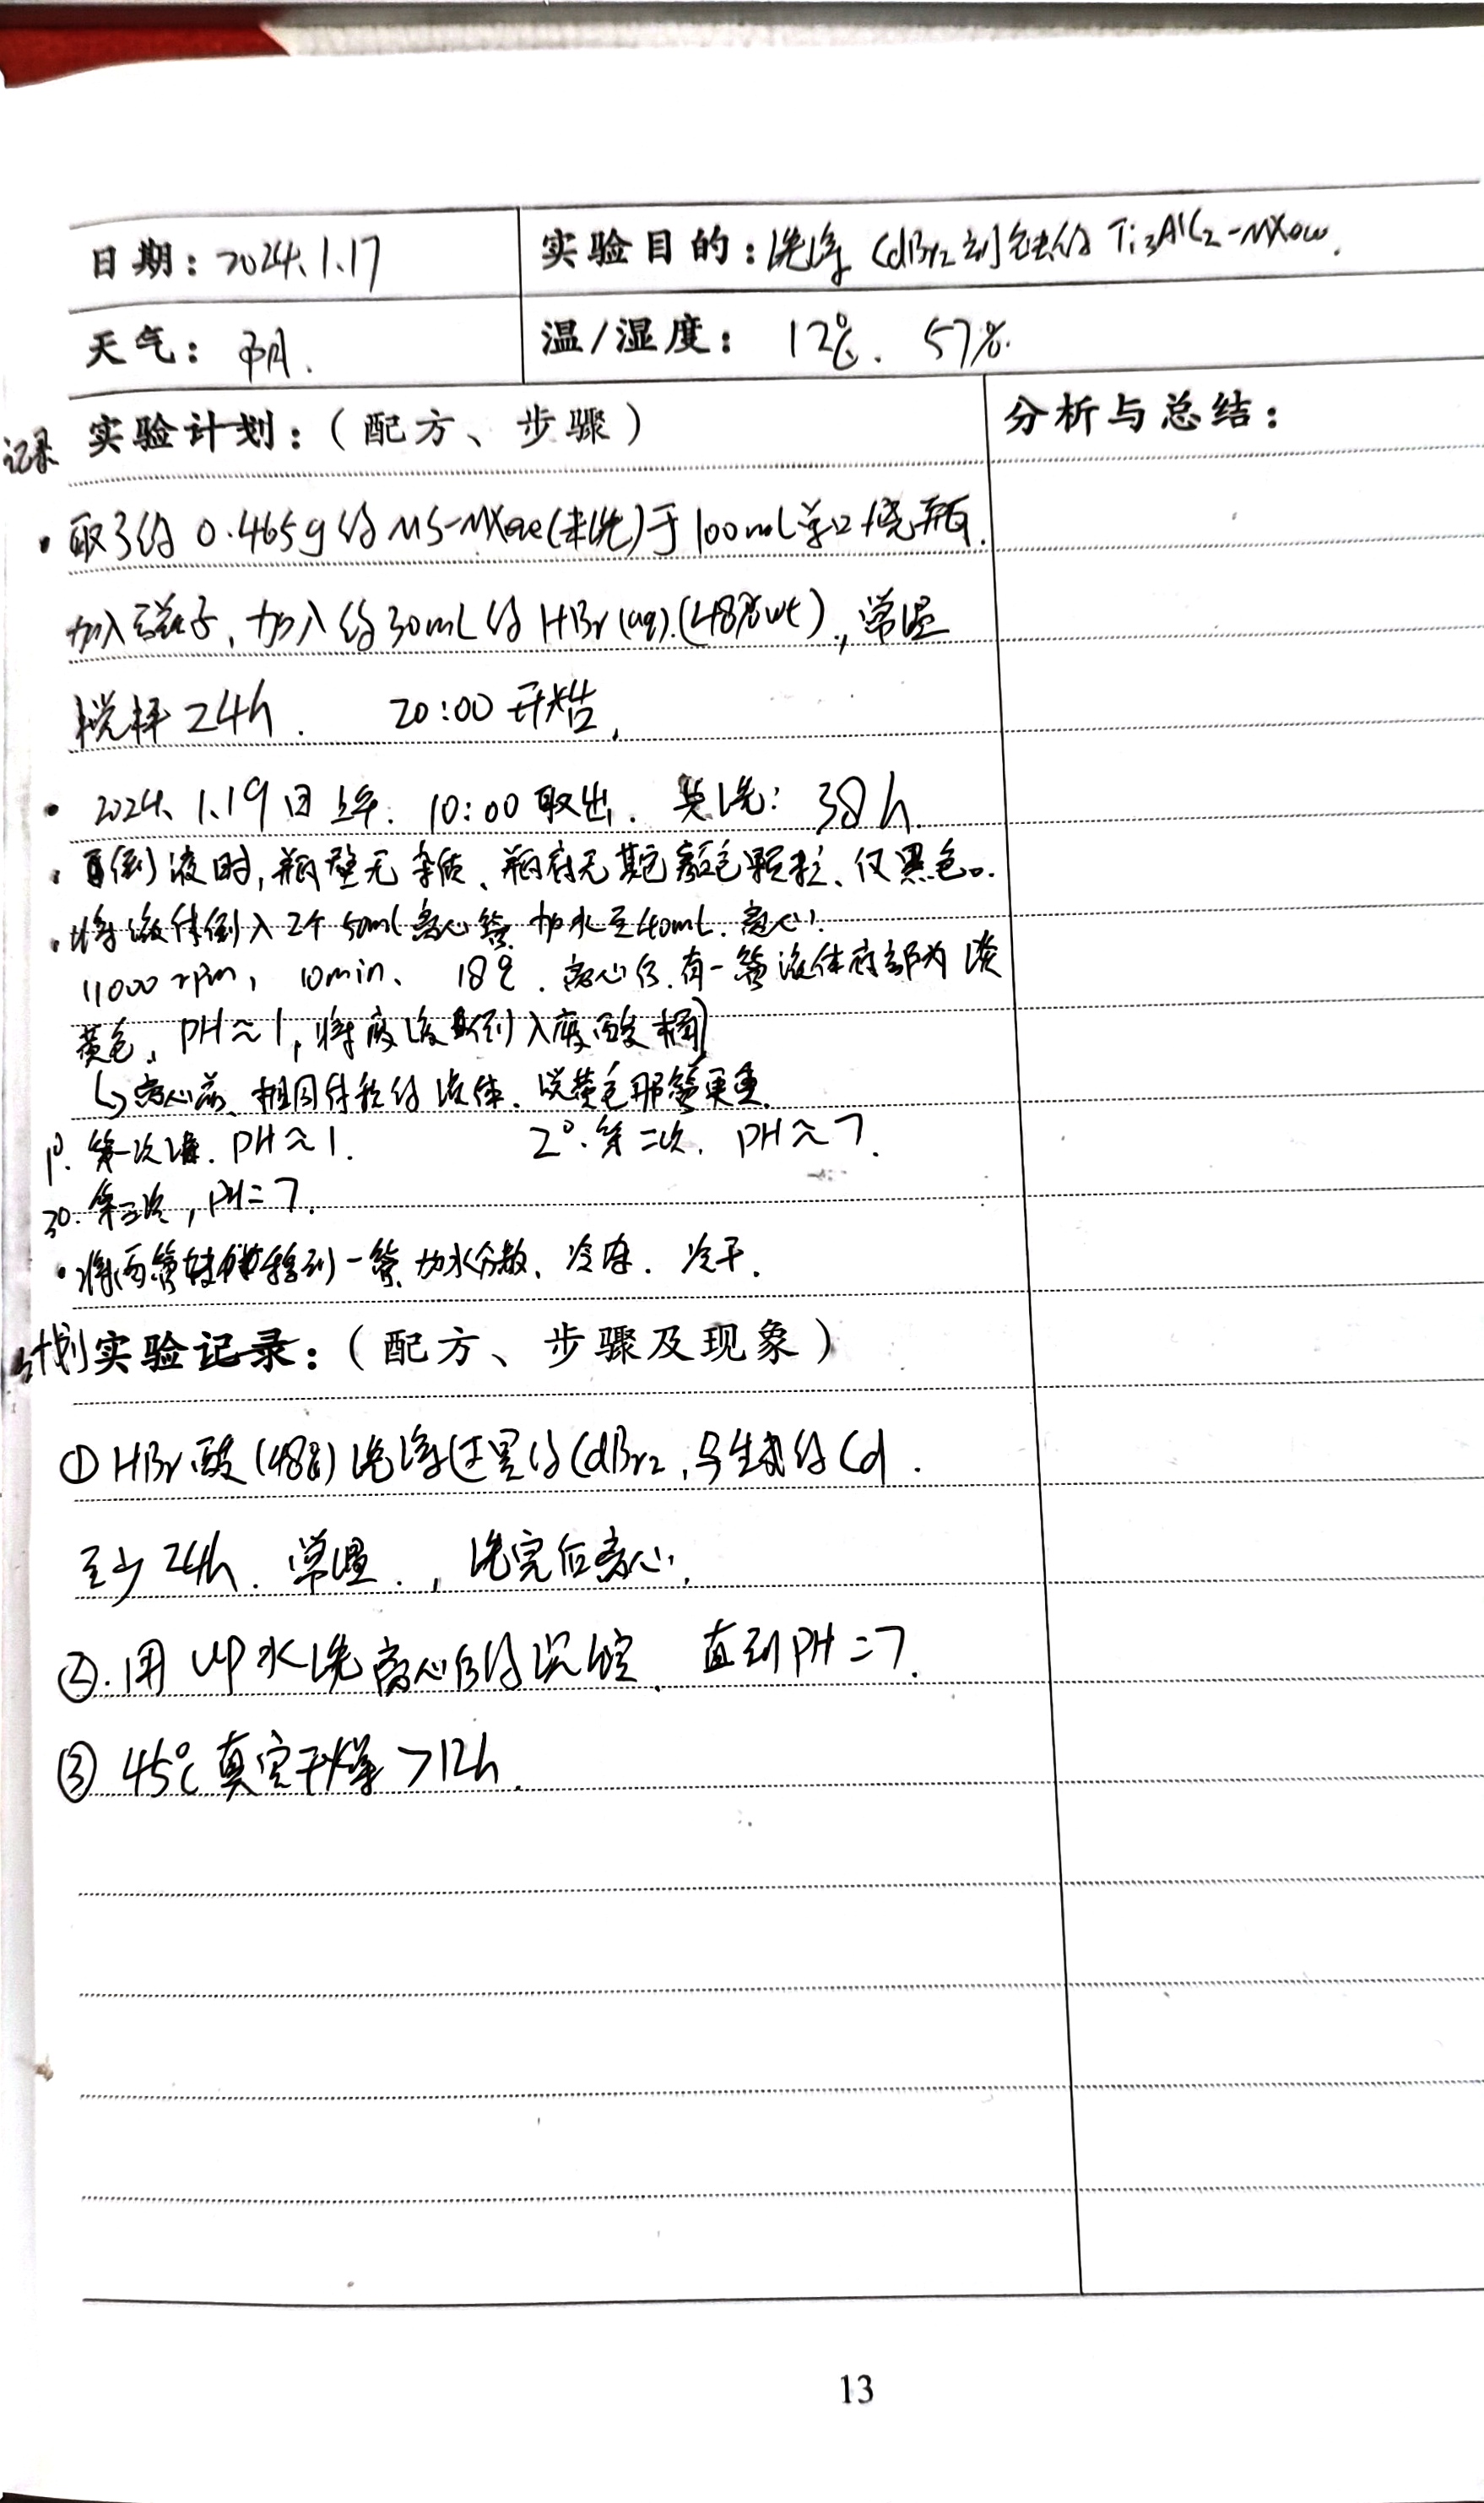 日期：2024.1.17
实验目的：洗净 CdBr₂刻蚀的 Ti₃AlC₂-MXene.
天气：阴.
温/湿度： 12℃. 57%.
记录 实验计划：（配方、步骤）
分析与总结：
· 取了约 0.465g 的 MS-MXene(未洗)于100mL单口烧瓶.
加入磁子，加入约30mL的 HBr(aq).(48%wt)，常温
搅拌 24h. 20:00 开始.
· 2024.1.19日上午. 10:00 取出. 共洗：38h.
· 倒液时，瓶壁无杂质、瓶底无其它颜色颗粒、仅黑色。
· 将液体倒入2个50mL离心管.加水至40mL.离心：
11000 rpm, 10min、 18℃. 离心后.有一管液体底部为淡
黄色. PH≈1，将废液倒入废酸桶
↳ 离心前、相同体积的液体.淡黄色那管更重.
1°. 第一次. PH≈1. 2°. 第二次. PH≈7.
3°. 第三次，PH=7.
· 将两管转移到一管.加水分散、冷冻. 冷干.
计划 实验记录：（配方、步骤及现象）
① HBr酸(48%)洗净过量的CdBr₂，与生成的Cd.
至少24h. 常温.，洗完后离心.
②. 用UP水洗离心后的沉淀. 直到PH=7.
③ 45℃真空干燥 >12h.
13